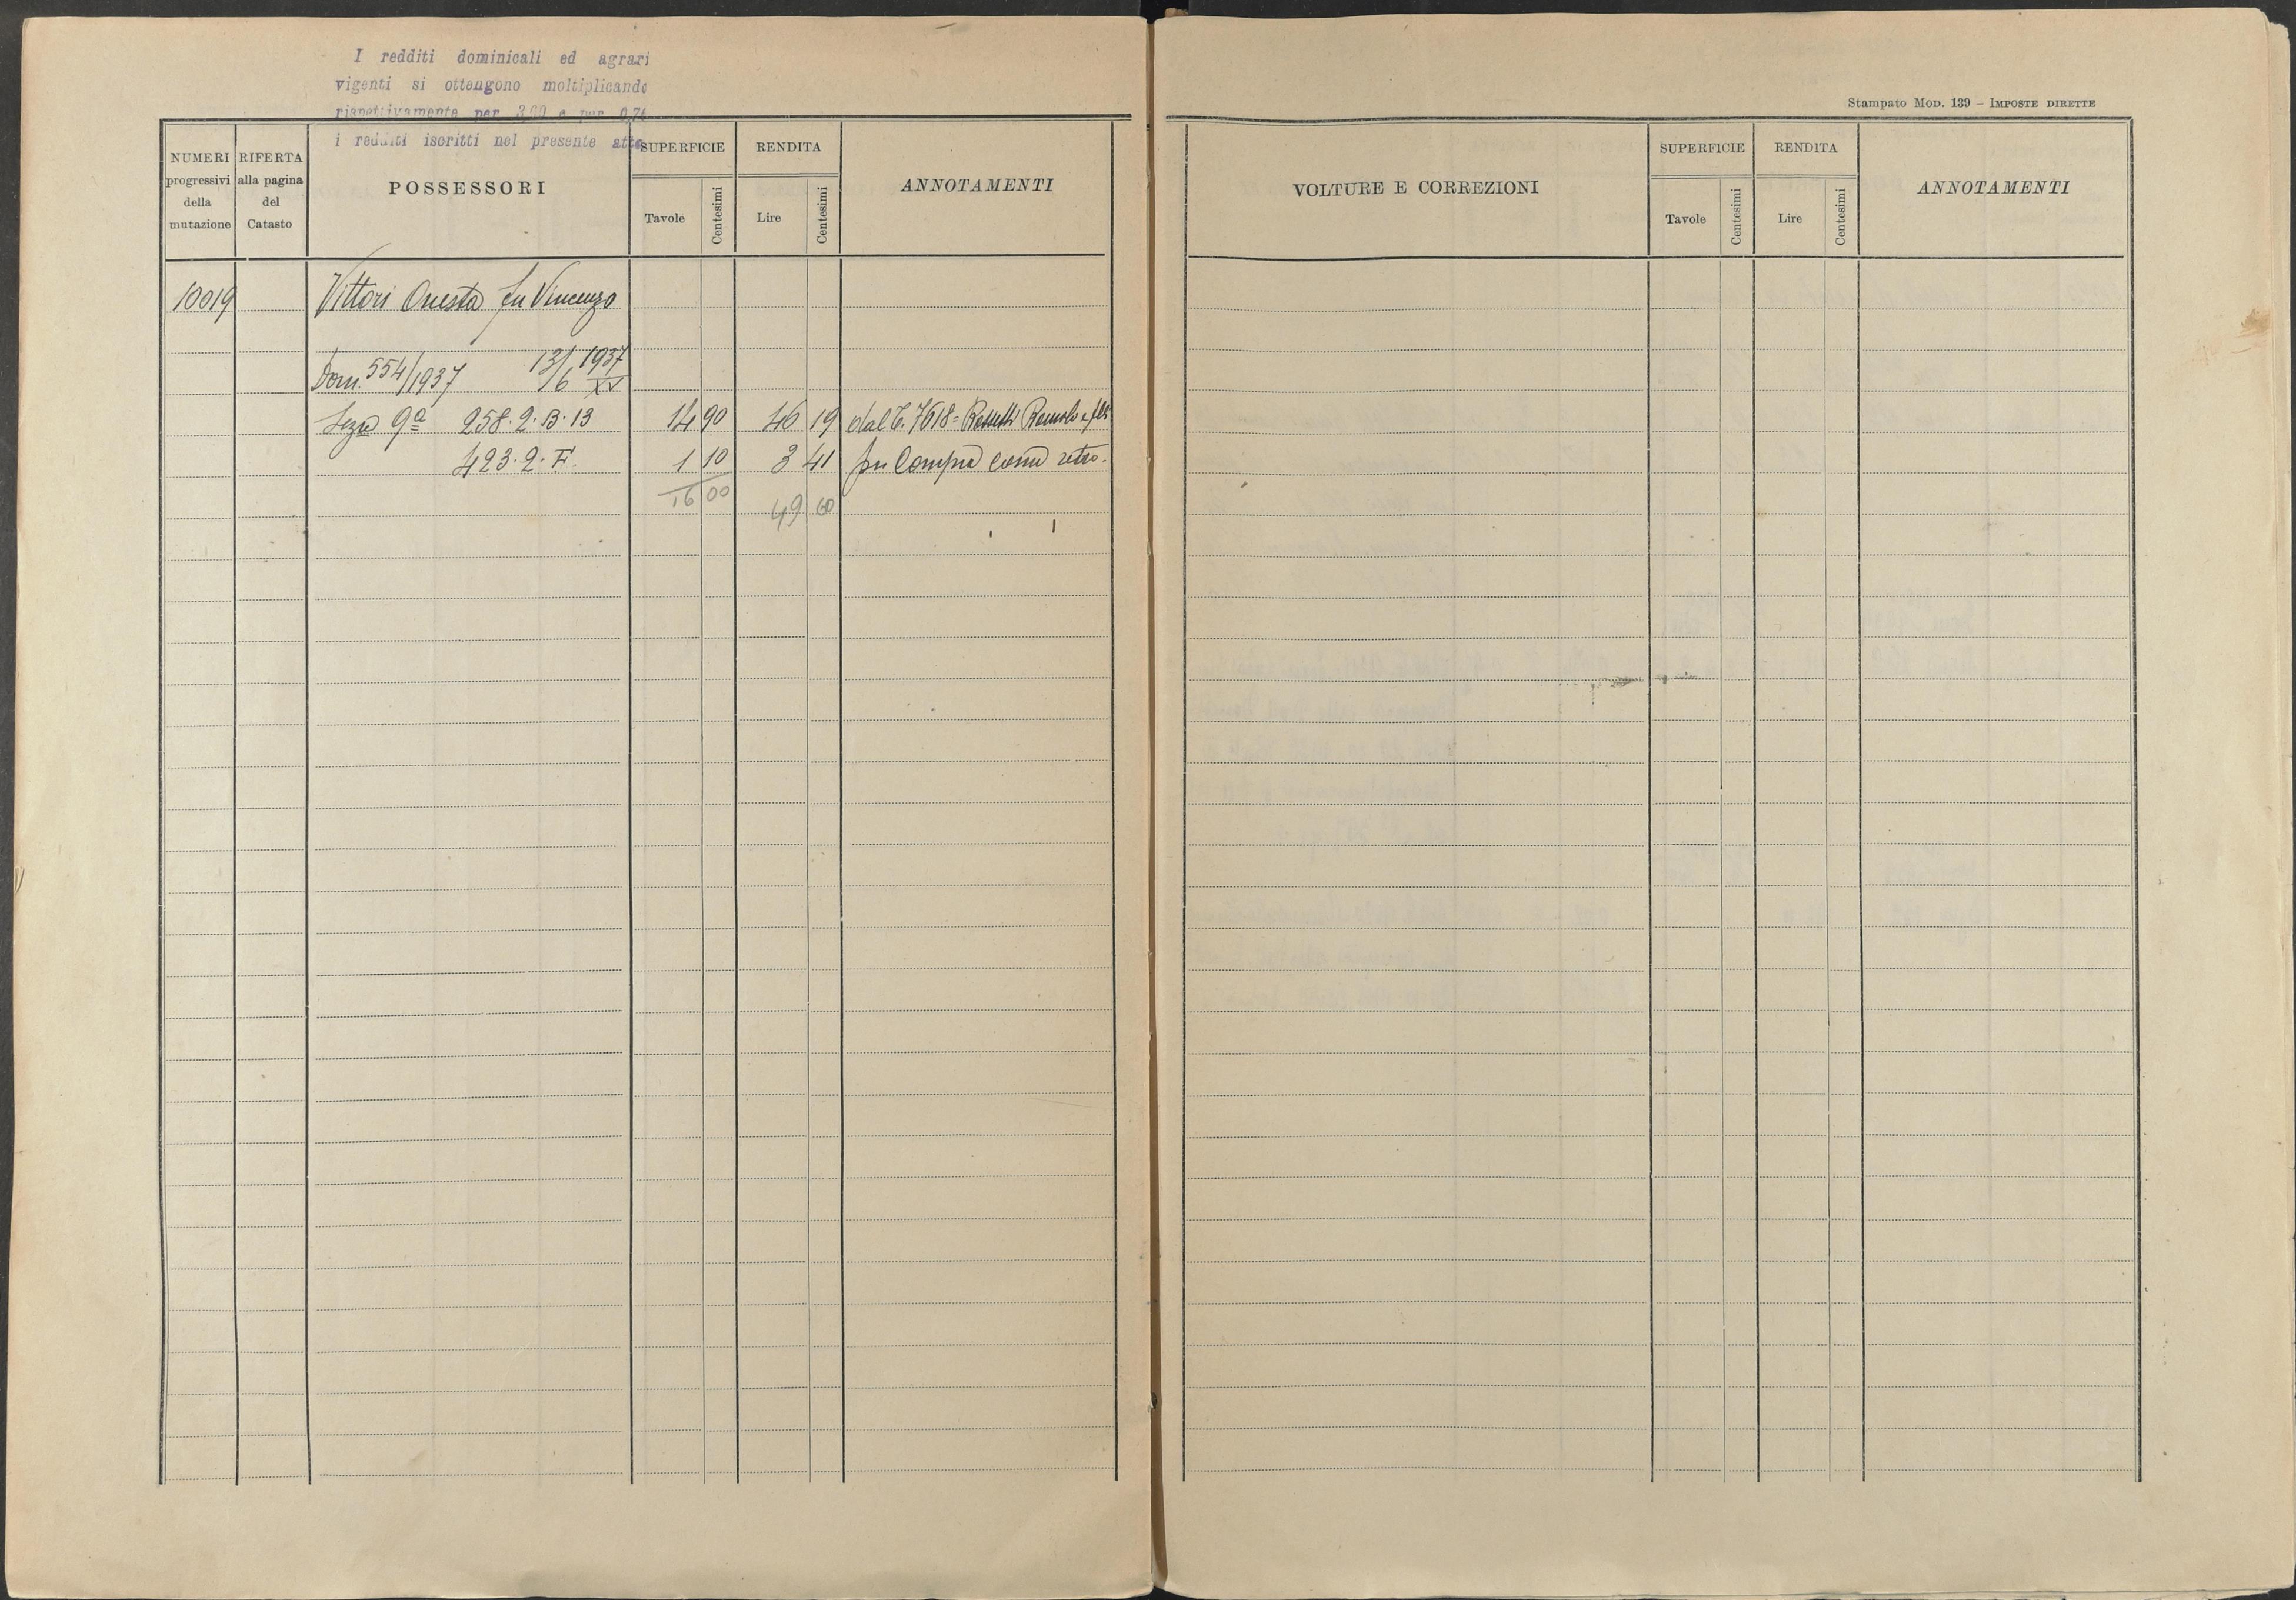 I redditi dominicali ed agrari
vigenti si ottengono moltiplicando
rispettivamente per 3,00 e per 0,74
i redditi iscritti nel presente atto
Stampato MOD. 139 – IMPOSTE DIRETTE
NUMERI progressivi della mutazione
RIFERTA alla pagina del Catasto
POSSESSORI
SUPERFICIE
Tavole
Centesimi
RENDITA
Lire
Centesimi
ANNOTAMENTI
VOLTURE E CORREZIONI
SUPERFICIE
Tavole
Centesimi
RENDITA
Lire
Centesimi
ANNOTAMENTI
10019 Vittori Onesta fu Vincenzo
Dom. 554/1937 13/6 1937 XV
Sezne 9ª 258.2.B.13 14 90 46 19 dal C. 7618 = Romolo e
423.2.F. 1 10 3 41 per Compra come retro.
16 00 49 60